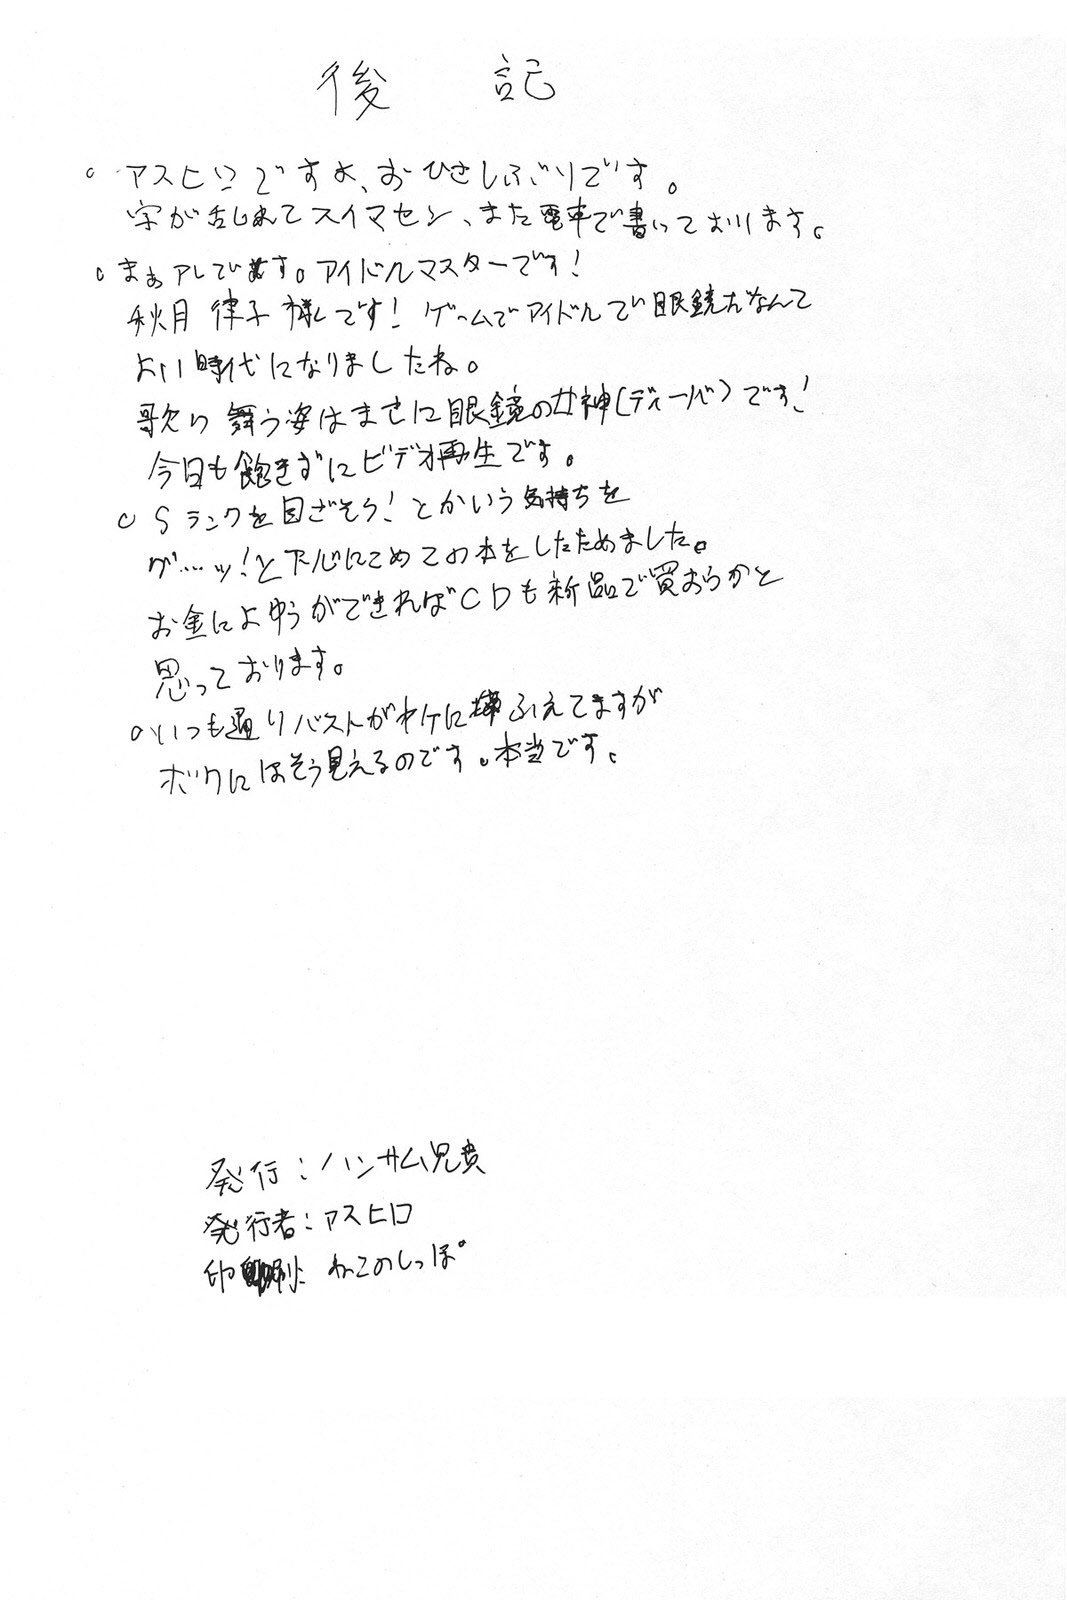 後 記
。アスヒロですよ、おひさしぶりです。
字が乱れてスイマセン、また電車で書いております。
。まぁアレです。アイドルマスターです!
秋月 律子様です! ゲームでアイドルで眼鏡だなんて
よい時代になりましたね。
歌い舞う姿はまさに眼鏡の女神(ディーバ)です!
今日も飽きずにビデオ再生です。
。Sランクを目ざそう!とかいう気持ちを
グ…ッ!と下心にこめてこの本をしたためました。
お金によゆうができればCDも新品で買おうかと
思っております。
。いつも通りバストがヤケにふえてますが
ボクにはそう見えるのです。本当です。
発行:ハンサム兄貴
発行者:アスヒロ
印刷:ねこのしっぽ